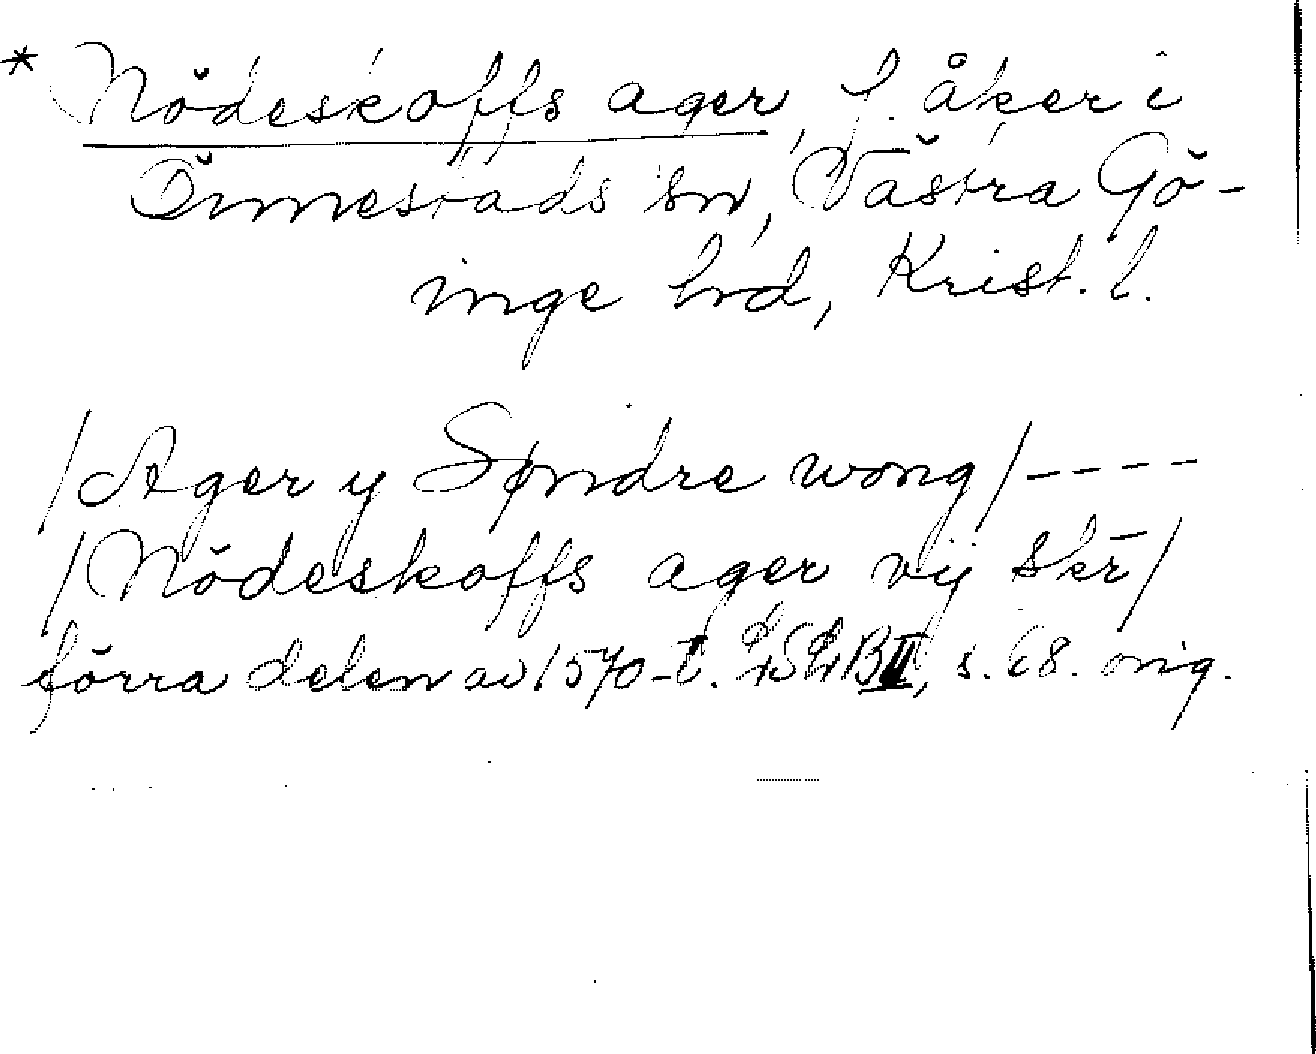 * Nödeskoffs ager, f. åker i
Önnestads sn, Västra Gö-
inge hd, Krist. l.
/Ager y Søndre wong/----
/Nödeskoffs ager vij skr̄/
förra delen av 1570-t. LSLB II, s. 68. orig.